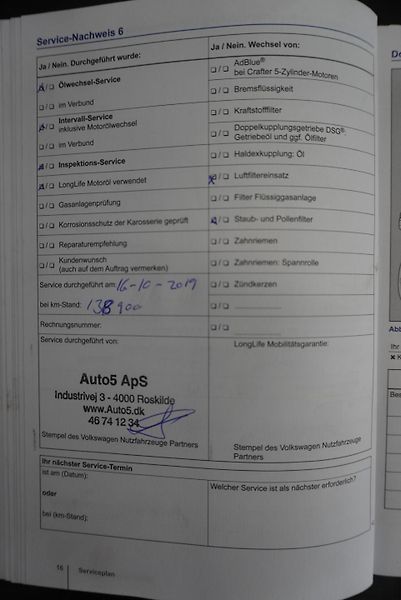 Service-Nachweis 6
Ja / Nein. Durchgeführt wurde:
Ölwechsel-Service
im Verbund
Intervall-Service
inklusive Motorölwechsel
im Verbund
Inspektions-Service
LongLife Motoröl verwendet
Gasanlagenprüfung
Korrosionsschutz der Karosserie geprüft
Reparaturempfehlung
Kundenwunsch
(auch auf dem Auftrag vermerken)
Service durchgeführt am: 16-10-2019
bei km-Stand: 138 900
Rechnungsnummer:
Service durchgeführt von:
Auto5 ApS
Industrivej 3 - 4000 Roskilde
www.Auto5.dk
46 74 12 34
Stempel des Volkswagen Nutzfahrzeuge Partners
Ja / Nein. Wechsel von:
AdBlue®
bei Crafter 5-Zylinder-Motoren
Bremsflüssigkeit
Kraftstofffilter
Doppelkupplungsgetriebe DSG®:
Getriebeöl und ggf. Ölfilter
Haldexkupplung: Öl
Luftfiltereinsatz
Filter Flüssiggasanlage
Staub- und Pollenfilter
Zahnriemen
Zahnriemen: Spannrolle
Zündkerzen
LongLife Mobilitätsgarantie:
Stempel des Volkswagen Nutzfahrzeuge
Partners
Ihr nächster Service-Termin
ist am (Datum):
oder
bei (km-Stand):
Welcher Service ist als nächster erforderlich?
16
Serviceplan